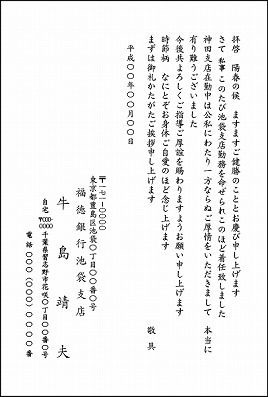 拝啓　陽春の候　ますますご健勝のこととお慶び申し上げます
さて　私事　このたび池袋支店勤務を命ぜられこのほど着任致しました
神田支店在勤中は公私にわたり一方ならぬご厚情をいただきまして　本当に
有り難うございました
今後共よろしくご指導ご厚誼を賜わりますようお願い申し上げます
時節柄　なにとぞお身体ご自愛のほど念じ上げます
まずは御礼かたがたご挨拶申し上げます
敬具
平成○○年○○月○○日
〒一七一-○○○○
東京都豊島区池袋○丁目○○番○号
福徳銀行池袋支店
牛島靖夫
自宅 〒○○○-○○○○ 千葉県習志野市花咲○丁目○○番○号
電話 ○○○（○○○）○○○○番